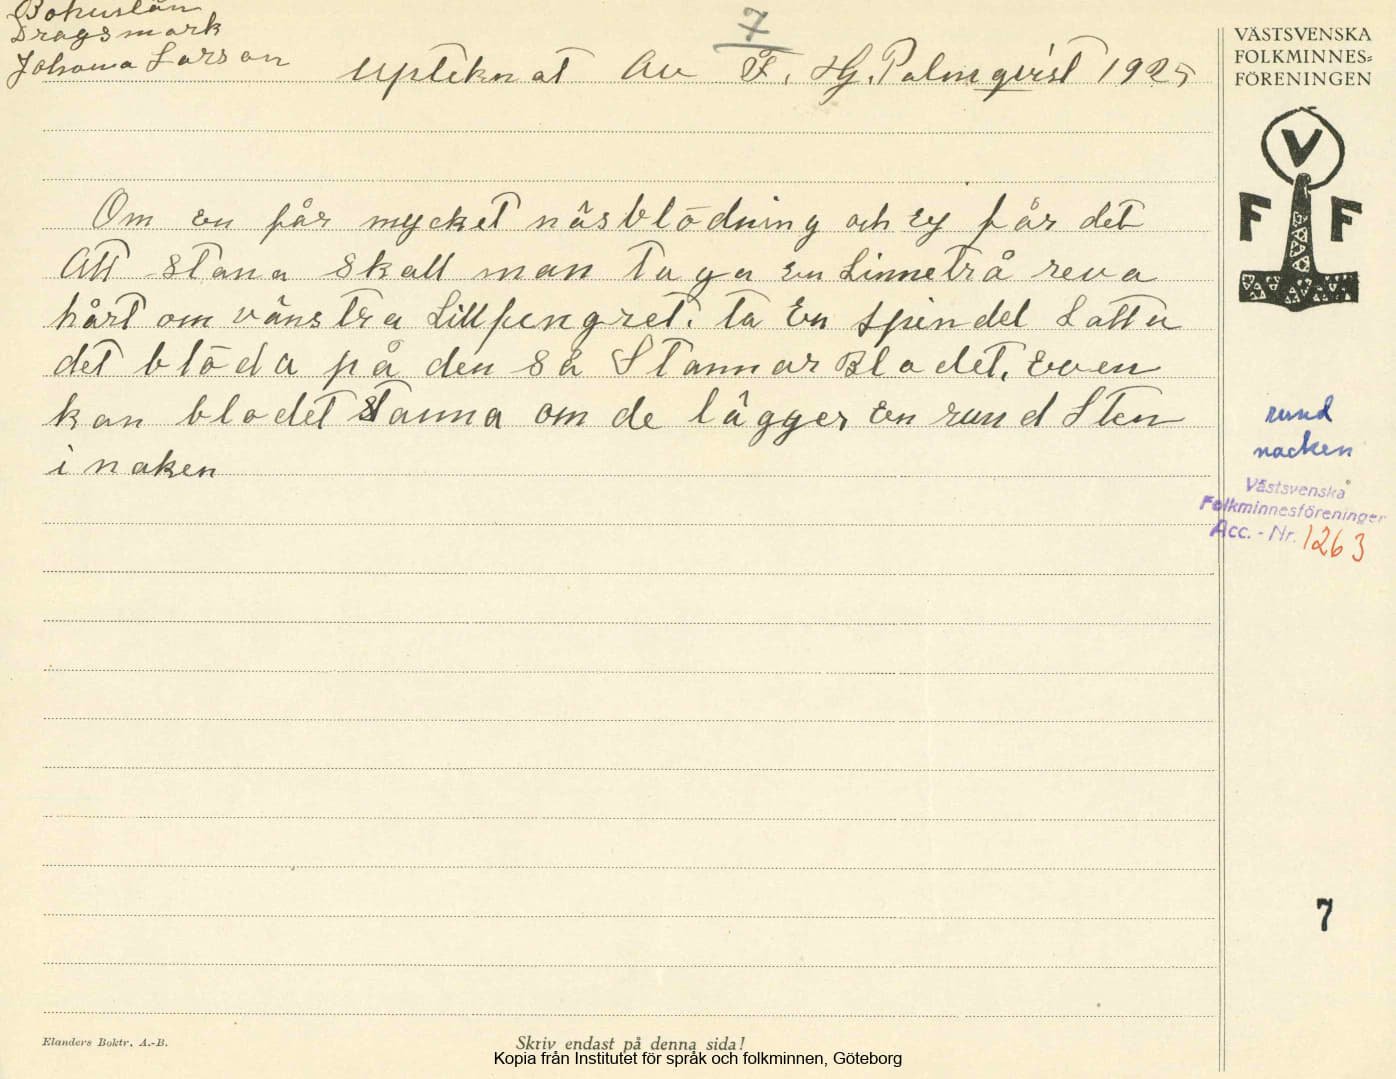 Bohuslän
Dragsmark
Johana Larson
7
Upteknat Av F. Hj. Palmqvist 1925
VÄSTSVENSKA
FOLKMINNES=
FÖRENINGEN
V
F F
Om en får mycket näsblödning och ej får det
Att stana skall man taga en Linnetrå reva
hårt om vänstra Lillfengret. ta En spindel Latta
det blöda på den så Stannar Blodet. Even
kan blodet Stanna om de lägger en rund Sten
i naken
rund
nacken
Västsvenska
Folkminnesföreningen
Acc. - Nr. 1263
7
Elanders Boktr. A.-B.
Skriv endast på denna sida!
Kopia från Institutet för språk och folkminnen, Göteborg